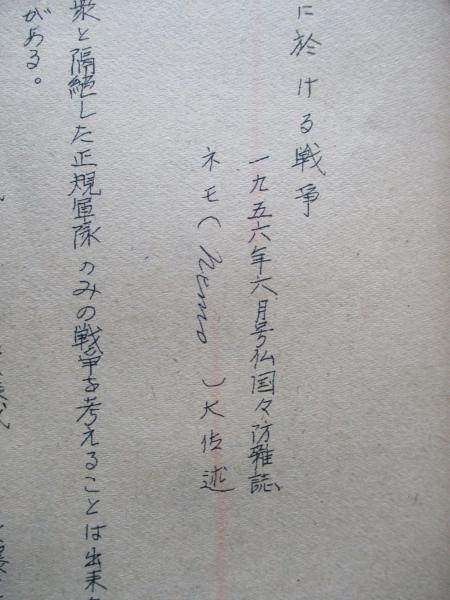 に於ける戦争
一九五六年六月号仏国々防雑誌、
ネモ(Nemo)大佐述
衆と隔絶した正規軍隊のみの戦争を考えることは出来
がある。